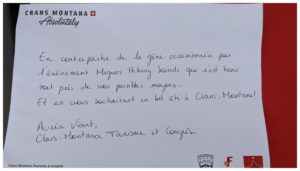 CRANS MONTANA
Absolutely
En contrepartie de la gêne occasionnée par
l'événement Mignon Hiking Bands qui s'est tenu
tout près de vos paisibles mayens.
Et en vous souhaitant un bel été à Crans-Montana!
Crans-Montana Tourisme et Congrès
Crans-Montana Tourisme & Congrès